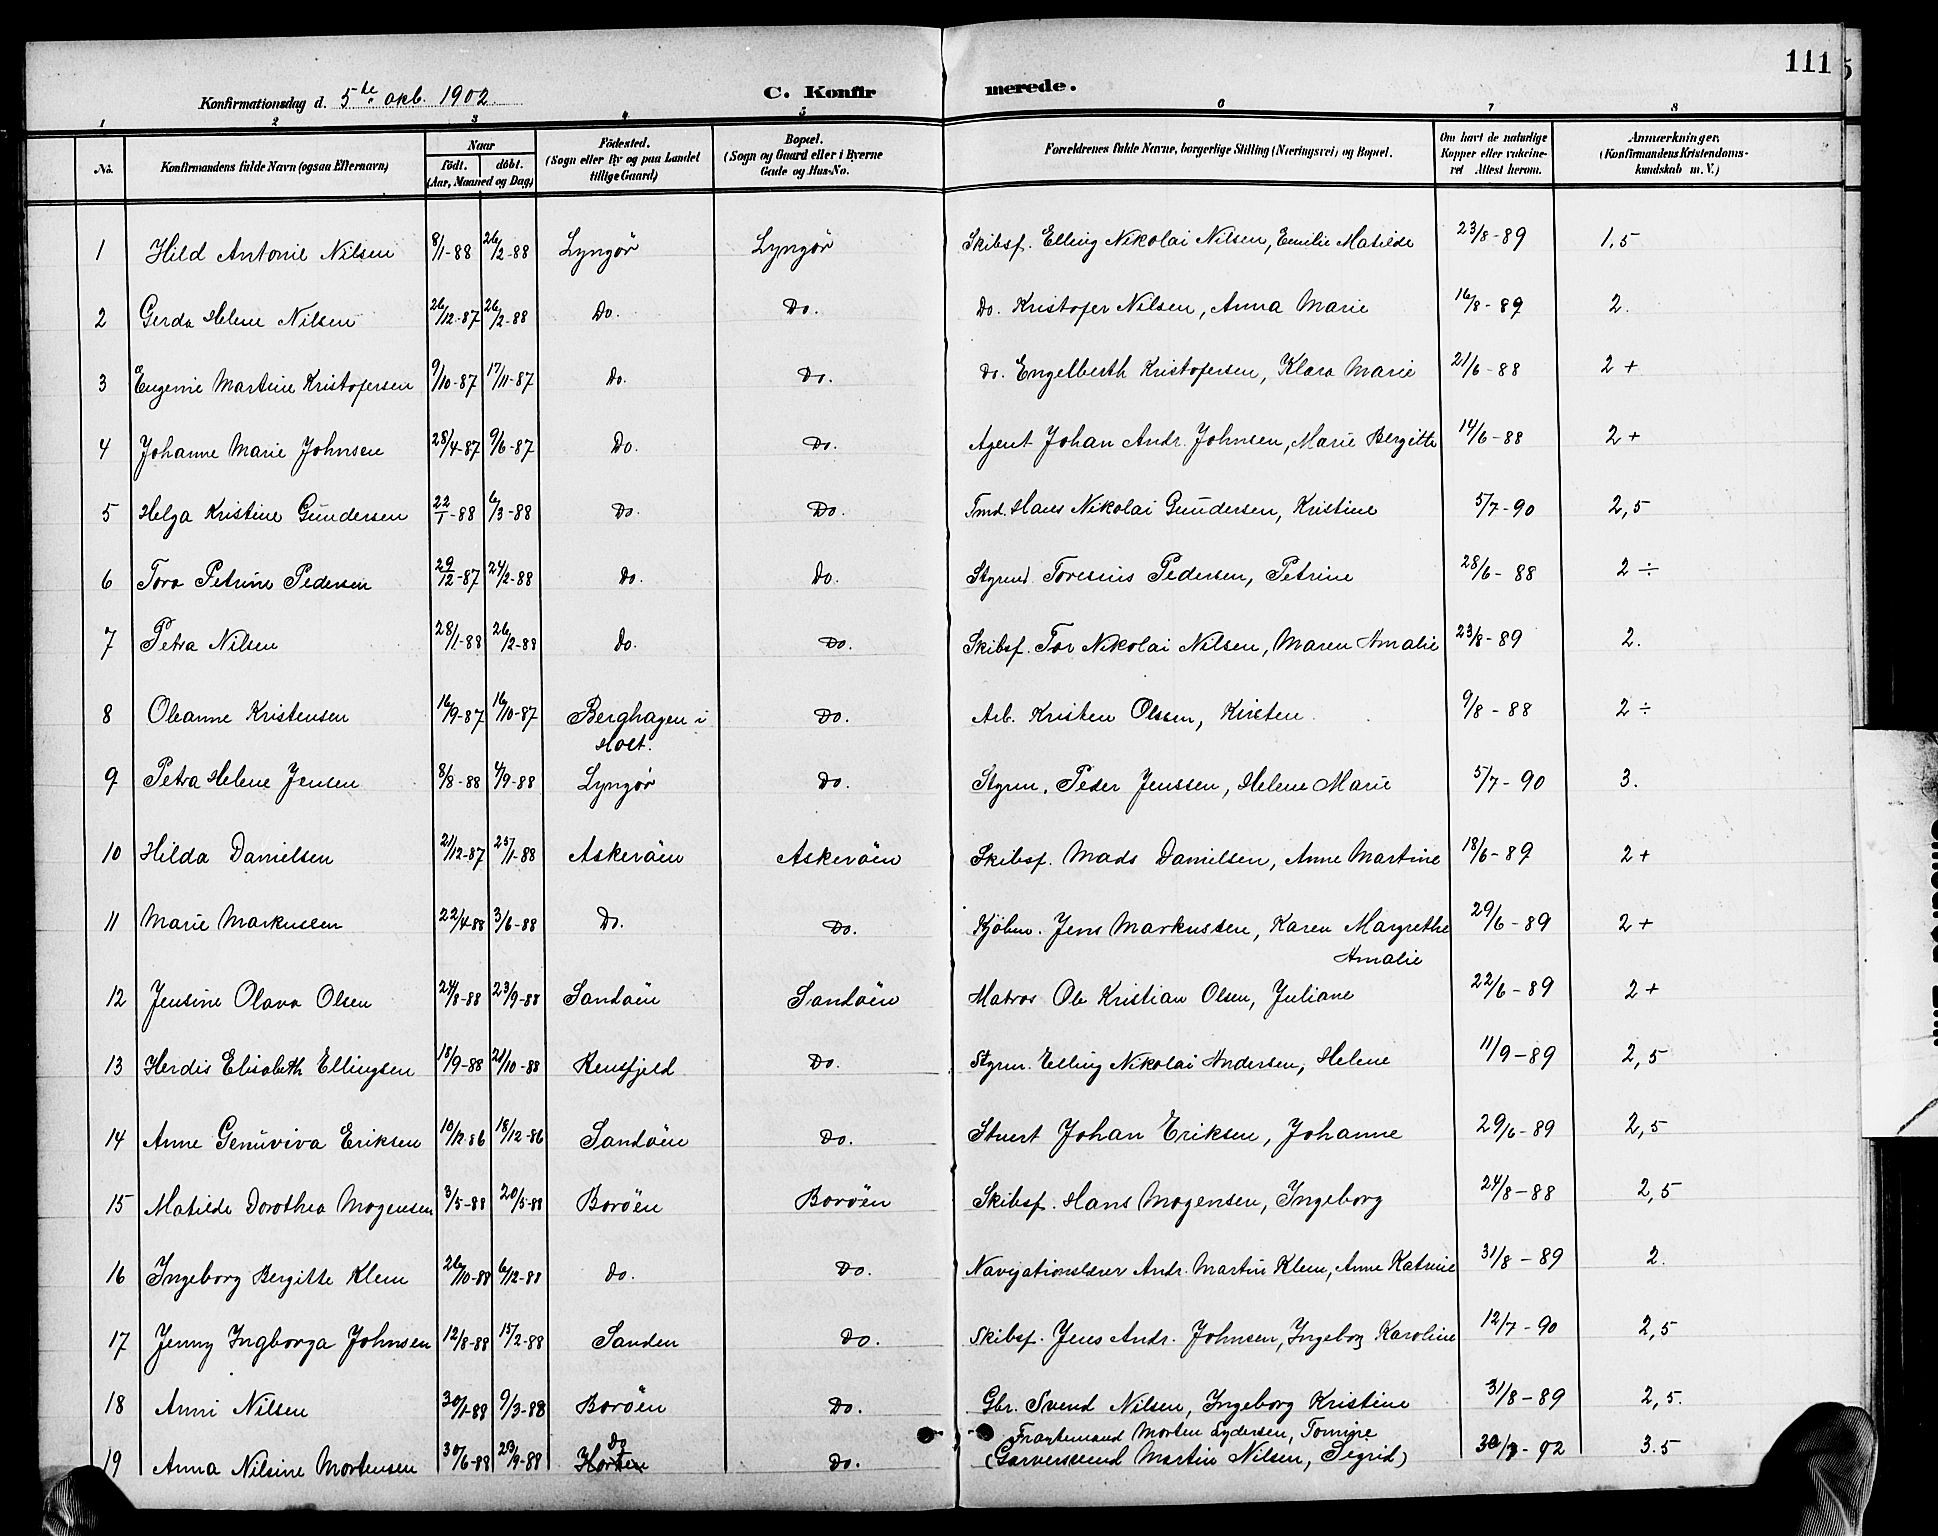 111
Konfirmationsdag d. 5te okb. 1902. C. Konfirmerede.
1 2 3 4 5 6 7 8
No. Konfirmandens fulde Navn (ogsaa Efternavn) Naar født. døbt. (Aar, Maaned og Dag) Fødested. (Sogn eller By og paa Landet tillige Gaard) Bopæl. (Sogn og Gaard eller i Byerne Gade og Hus-No. Forældrenes fulde Navne, borgerlige Stilling (Næringsvei) og Bopæl. Om havt de naturlige Kopper eller vakcineret Attest herom. Anmærkninger, (Konfirmandens Kristendomskundskab m. V.)
1 Hild Antonie Nilsen 8/1-88 26/2-88 Lyngør Lyngør Skibsf. Elling Nikolai Nilsen, Emilie Matilde 23/8-89 1,5
2 Gerda Helene Nilsen 26/12-87 26/2-88 Do. Do. Do. Kristofer Nilsen, Anna Marie 16/8-89 2.
3 Eugenie Martine Kristofersen 9/10-87 17/11-87 Do. Do. Do. Engelberth Kristofersen, Klara Marie 21/6-88 2+
4 Johanne Marie Johnsen 28/4-87 9/6-87 Do. Do. Agent Johan Andr. Johnsen, Marie Bergitte 14/6-88 2+
5 Helga Kristine Gundersen 22/1-88 6/3-88 Do. Do. Tmd. Hans Nikolai Gundersen, Kristine 5/7-90 2,5
6 Tora Petrine Pedersen 29/12-87 24/2-88 Do. Do. Styrmd Toresius Pedersen, Petrine 28/6-88 2 ÷
7 Petra Nilsen 28/1-88 26/2-88 Do. Do. Skibsf. Tor Nikolai Nilsen, Maren Amalie 23/8-89 2.
8 Oleanne Kristensen 16/9-87 16/10-87 Berghagen i Holt. Do. Arb. Kristen Olssen, Kirsten 9/8-88 2 ÷
9 Petra Helene Jensen 8/8-88 4/9-88 Lyngør Do. Styrm. Peder Jenssen, Helene Marie 5/7-90 3.
10 Hilda Danielsen 21/12-87 25/1-88 Askerøen Askerøen Skibsf. Mads Danielsen, Anne Martine 18/6-89 2+
11 Marie Markussen 22/4-88 3/6-88 Do. Do. Kjøbm. Jens Markussen, Karen Margrethe Amalie 29/6-89 2+
12 Jensine Olava Olsen 24/8-88 23/9-88 Sandøen Sandøen Matros Ole Kristian Olsen, Juliane 22/6-89 2+
13 Herdis Elisabeth Ellingsen 18/9-88 21/10-88 Rensfjeld Do. Styrm. Elling Nikolai Andersen, Helene 11/9-89 2,5
14 Anne Genuviva Eriksen 10/12-86 18/12-86 Sandøen Do. Stuert Johan Eriksen, Johanne 29/6-89 2,5
15 Matilde Dorothea Mogensen 3/5-88 20/5-88 Borøen Borøen Skibsf. Hans Mogensen, Ingeborg 24/8-88 2,5
16 Ingeborg Bergitte Klem 26/10-88 6/12-88 Do. Do. Navigationslærer Andr. Martin Klem, Anne Katrine 31/8-89 2.
17 Jenny Ingborga Johnsen 12/8-88 15/2-88 Sanden Do. Skibsf. Jens Andr. Johnsen, Ingeborg Karoline 12/7-90 2,5
18 Anni Nilsen 30/1-88 9/3-88 Borøen Do. Gbr. Svend Nilsen, Ingeborg Kristine 31/8-89 2,5.
19 Anna Nilsine Mortensen 30/6-88 23/9-88 Do Horten Do. Fragtemand Morten Lydersen, Tomine (Garversvend Martin Nilsen, Sigrid) 92 3.5